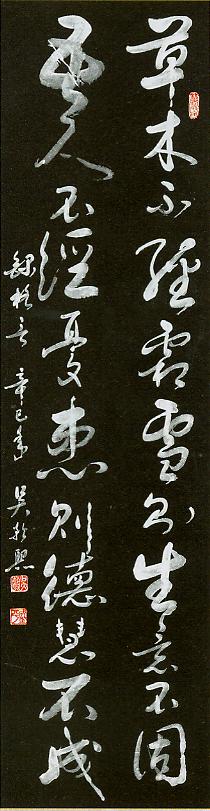 草木不經霜雪則生意不固
吾人不經憂患則德慧不成
錄格言 辛巳年 吳 熙